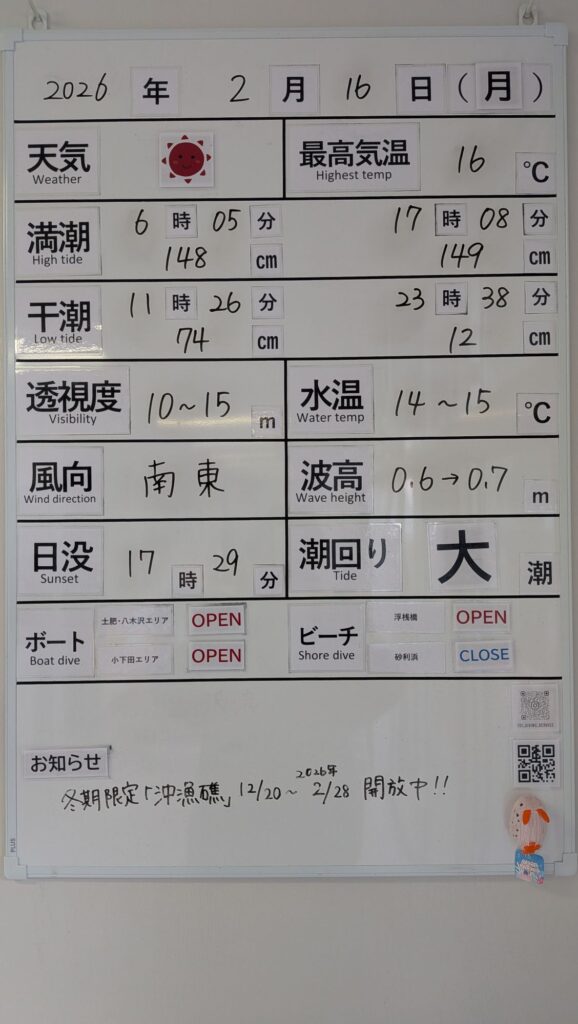 2026 年 2 月 16 日 (月)
天気 最高気温 16 ℃
Weather Highest temp
満潮 6 時 05 分 17 時 08 分
High tide 148 cm 149 cm
干潮 11 時 26 分 23 時 38 分
Low tide 74 cm 12 cm
透視度 10～15 m 水温 14～15 ℃
Visibility Water temp
風向 南東 波高 0.6→0.7 m
Wind direction Wave height
日没 17 時 29 分 潮回り 大 潮
Sunset Tide
ボート 土肥・八木沢エリア OPEN ビーチ 浮桟橋 OPEN
Boat dive 小下田エリア OPEN Shore dive 砂利浜 CLOSE
お知らせ
冬期限定「沖漁礁」12/20～2026年2/28 開放中!!
PLUS